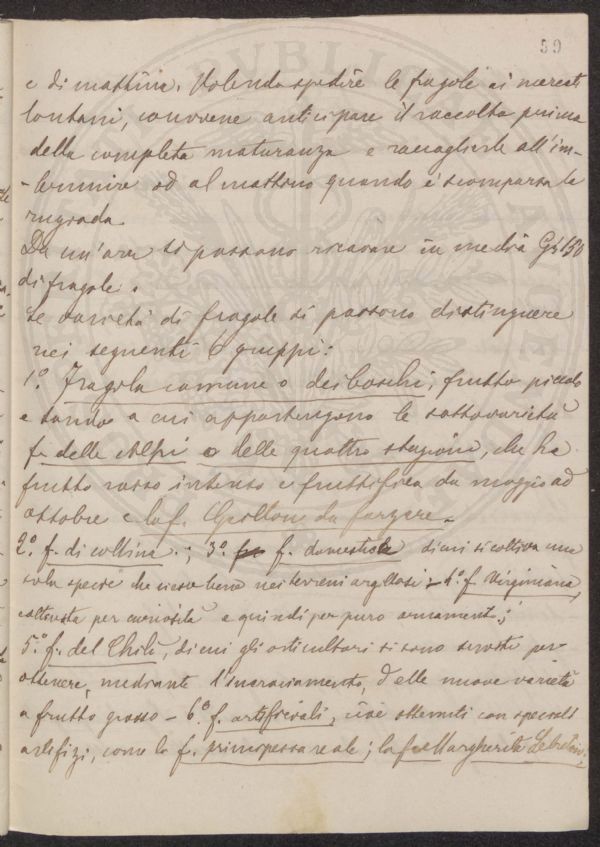 59
e di mattina. Volendo spedire le fragole ai mercati
lontani, conviene anticipare il raccolto prima
della completa maturanza e raccoglierle all'im-
-brunire od al mattino quando è scomparsa la
rugiada.
Da un'ara si possono ricavare in media
di fragole.
Le varietà di fragole si possono distinguere
nei seguenti 6 gruppi:
1.º Fragola comune o dei boschi, frutto piccolo
e tondo a cui appartengono le sottovarietà
f. delle Alpi o delle quattro stagioni, che ha
frutto rosso intenso e fruttifica da maggio ad
ottobre e la f. da forzare.
2.º f. di collina.; 3.º f. domestica di cui si coltiva una
sola specie che riesce bene nei terreni argillosi; 4.º f. Virginiana,
coltivata per curiosità e quindi per puro ornamento;
5.º f. del Chilì, di cui gli orticultori si sono serviti per
ottenere, mediante l'incrociamento, delle nuove varietà
a frutto grosso - 6.º f. artificiali, cioè ottenuti con speciali
artifizi, come la f. principessa reale; la f. Margherita Lebreton;